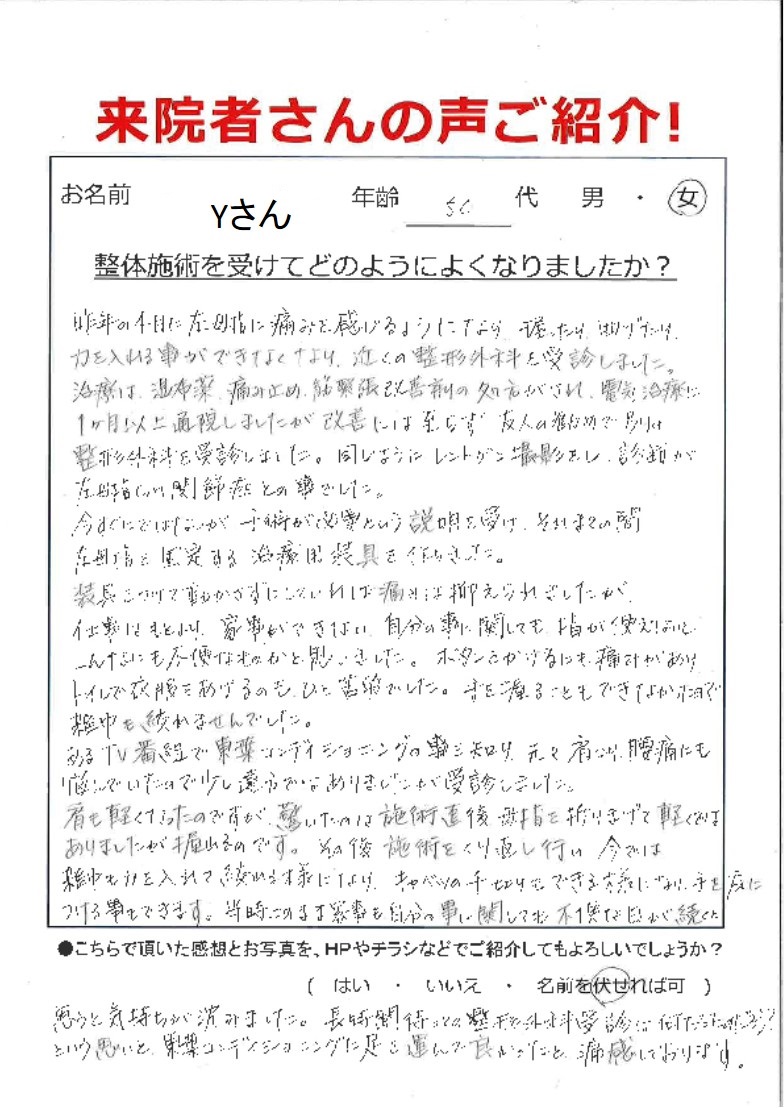 来院者さんの声ご紹介!
お名前 Yさん 年齢 50 代 男 ・ 女
整体施術を受けてどのようによくなりましたか?
昨年の4月に左母指に痛みを感じるようになり、握ったり、曲げたり、
力を入れる事ができなくなり、近くの整形外科を受診しました。
治療は、湿布薬、痛み止め、筋緊張改善剤の処方がされ、電気治療に
1ヶ月以上通院しましたが改善には至らず 友人の勧めで別の
整形外科を受診しました。同じようにレントゲン撮影をし、診断が
左母指CM関節症との事でした。
今すぐにではないが 手術が必要という説明を受け、それまでの間
左母指を固定する治療用装具を作りました。
装具をつけて動かさずにしていれば痛みは抑えられましたが、
仕事はもとより、家事ができない、自分の事に関しても、指が使えないと
こんなにも不便なものかと思いました。ボタンをかけるにも痛みがあり
トイレで衣服をあげるのも、ひと苦労でした。手を握ることもできなかったので
雑巾も絞れませんでした。
あるTV番組で東葉コンディショニングの事を知り、元々肩こり、腰痛にも
悩んでいたので少し遠方ではありましたが受診しました。
肩も軽くなったのですが、驚いたのは施術直後 母指を折りまげて軽くでは
ありましたが握れるのです。その後 施術をくり返し行い 今では
雑巾も力を入れて絞れる様になり、キャベツの千切りもできる様になり、手を床に
つける事もできます。当時このまま家事も自分の事に関しても不便な日が続くと
●こちらで頂いた感想とお写真を、HPやチラシなどでご紹介してもよろしいでしょうか?
( はい ・ いいえ ・ 名前を伏せれば可 )
思うと気持ちが沈みました。長時間待っての整形外科受診は何だったのだろう?
という思いと、東葉コンディショニングに足を運んで良かったと、痛感しております。